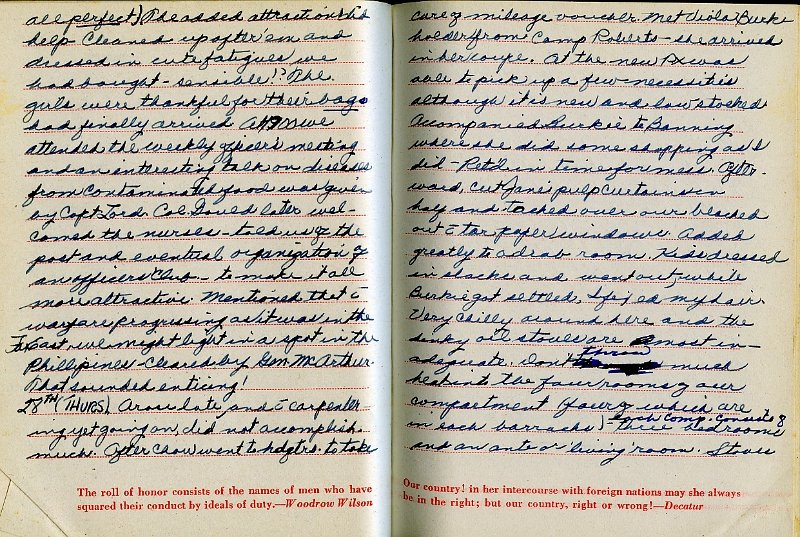 all perfect) The added attraction this
help - Cleaned up after 'em and
dressed in cute fatigues we
had bought - sensible!! The
girls were thankful for their bags
had finally arrived. At 1 PM we
attended the weekly officers meeting
and an interesting talk on diseases
from contaminated food was given
by Capt. Ford. Col. Gould later wel-
comed the nurses - told us of the
post and eventual organization of
an officers Club - to make it all
more attractive. Mentioned that c̄
warfare progressing as it was in the
Far East, we might light in a spot in the
Phillipines - cleared by Gen. McArthur.
That sounded enticing!
28TH (THURS). Arose late, and c̄ carpenter-
ing yet going on, did not accomplish
much. After chow went to hdqtrs. to take
The roll of honor consists of the names of men who have
squared their conduct by ideals of duty.—Woodrow Wilson
care of mileage voucher. Met Viola Burk-
holder from Camp Roberts - she arrived
in her coupe. At the new PX was
able to pick up a few necessities
although it is new and low stocked.
Accompanied Burkie to Banning
where she did some shopping as I
did - Ret'd in time for mess. After-
ward, cut Jane's pulp curtains in
half and tacked over our blacked
out c̄ tar paper windows. Added
greatly to a drab room. Kids dressed
in slacks and went out, while
Burkie got settled, I fij'ed my hair.
Very chilly around here and the
dinky oil stoves are most in-
adequate. Don't throw much
heat in the four rooms of our
compartment (four of which are
in each barracks) - each comp. consists of
three bedrooms
and an ante or 'living' room. Stoves
Our country! in her intercourse with foreign nations may she always
be in the right; but our country, right or wrong!—Decatur